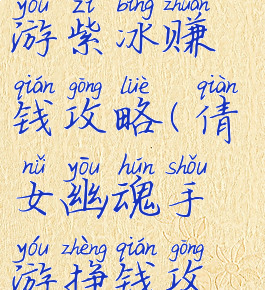 yóu zǐ bīng zhuàn
游紫冰赚
qián gōng lüè qiàn
钱攻略(倩
nǚ yōu hún shǒu
女幽魂手
yóu zhèng qián gōng
游挣钱攻